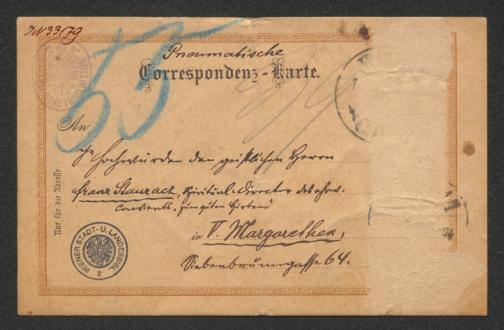 IN 33179
53
Pneumatische
Correspondenz-Karte.
An
Se Hochwürden den geistlichen Herrn
Franz Stauracz, Spiritual-Director des ehrw.
Convents zum guten Hirten
in V. Margarethen,
Siebenbrunngasse 64.
Nur für die Adresse
WIENER STADT- U. LANDESBIBL